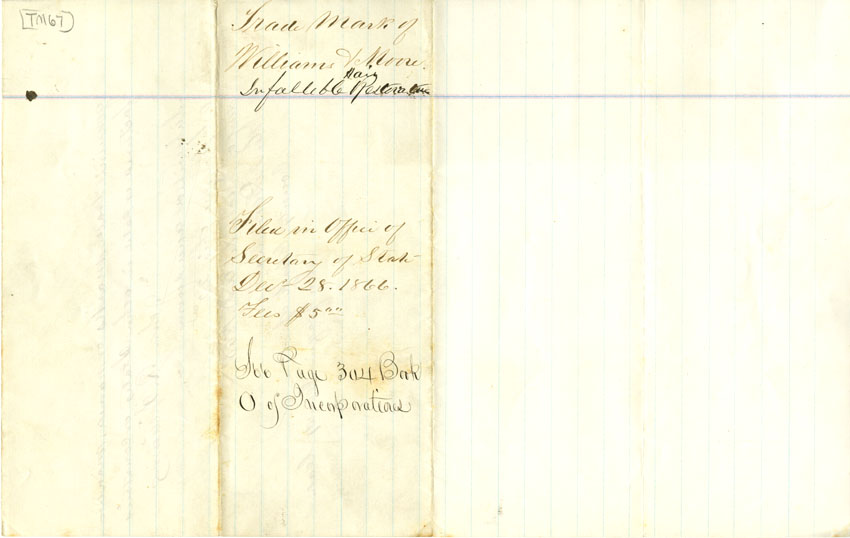 [TM67]
Trade Mark of
Williams & Moore.
Hair
Infallible Restorative
Filed in Office of
Secretary of State
Dec 28. 1866.
Fees $5.00
See Page 304 Book
O of Incorporations